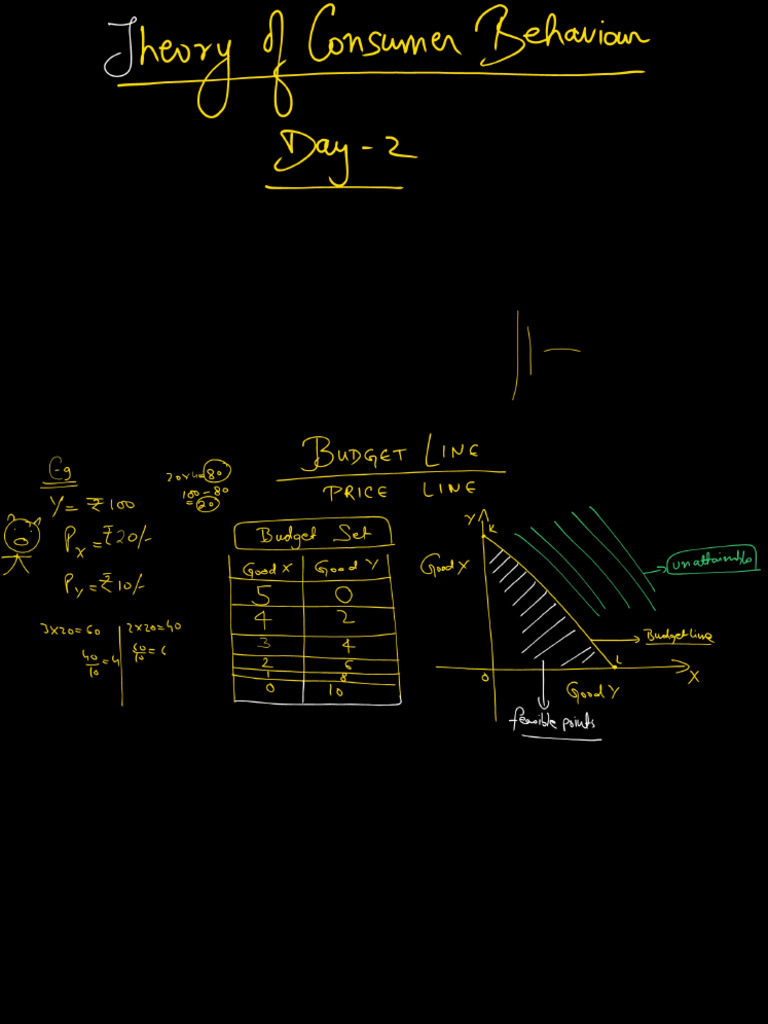 Theory of Consumer Behaviour
Day - 2
BUDGET LINE
PRICE LINE
Eg
Y = ₹100
Px = ₹20/-
Py = ₹10/-
20×4=80
100-80
=20
3×20=60
40/10=4
2×20=40
60/10=6
Budget Set
Good X Good Y
5 0
4 2
3 4
2 6
1 8
0 10
Y
K
Good X
unattainable
Budget line
L
0
X
Good Y
feasible points